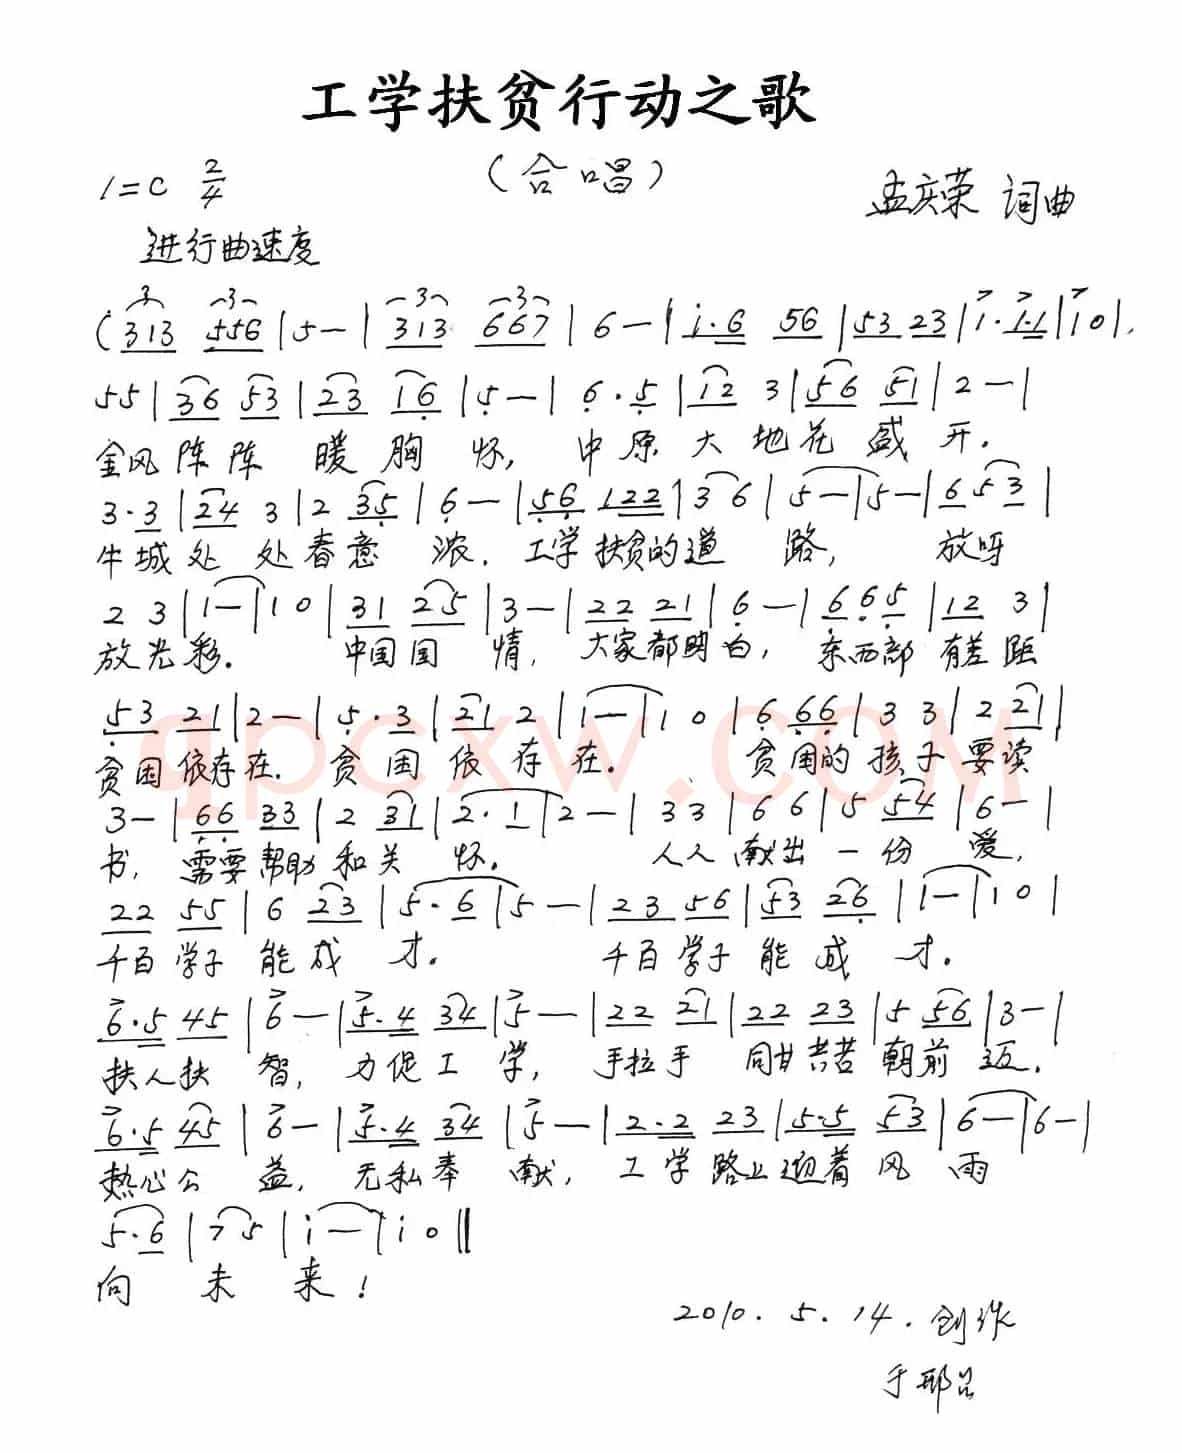 工学扶贫行动之歌
(合唱)
1=C 2/4
孟庆荣 词曲
进行曲速度
(313 556 | 5 — | 313 667 | 6 — | i·6 56 | 53 23 | 1·1·1 | 1 0 |
55 | 36 53 | 23 16 | 5 — | 6·5 | 12 3 | 56 51 | 2 — |
金风阵阵 暖胸怀, 中原大地花盛开.
3·3 | 24 3 | 2 35 | 6 — | 56 122 | 3 6 | 5 — | 5 — | 6 5 3 |
牛城处处春意浓. 工学扶贫的道路, 放呀
2 3 | 1 — | 1 0 | 31 25 | 3 — | 22 21 | 6 — | 6 6 5 | 12 3 |
放光彩. 中国国情, 大家都明白, 东西部有差距
53 21 | 2 — | 5·3 | 21 2 | 1 — | 1 0 | 6 66 | 3 3 | 2 21 |
贫困依存在. 贫困依存在. 贫困的孩子要读
3 — | 66 33 | 2 31 | 2·1 | 2 — | 3 3 | 6 6 | 5 54 | 6 — |
书, 需要帮助和关怀. 人人献出一份爱,
22 55 | 6 23 | 5·6 | 5 — | 23 56 | 53 26 | 1 — | 1 0 |
千百学子能成才. 千百学子能成才.
6·5 45 | 6 — | 5·4 34 | 5 — | 22 21 | 22 23 | 5 56 | 3 — |
扶人扶智, 力促工学, 手拉手 同甘共苦朝前迈.
6·5 45 | 6 — | 5·4 34 | 5 — | 2·2 23 | 5·5 53 | 6 — | 6 — |
热心公益, 无私奉献, 工学路上迎着风雨
5·6 | 7 5 | i — | i 0 ‖
向未来!
2010.5.14.创作
于邢台
qpcxw.COM